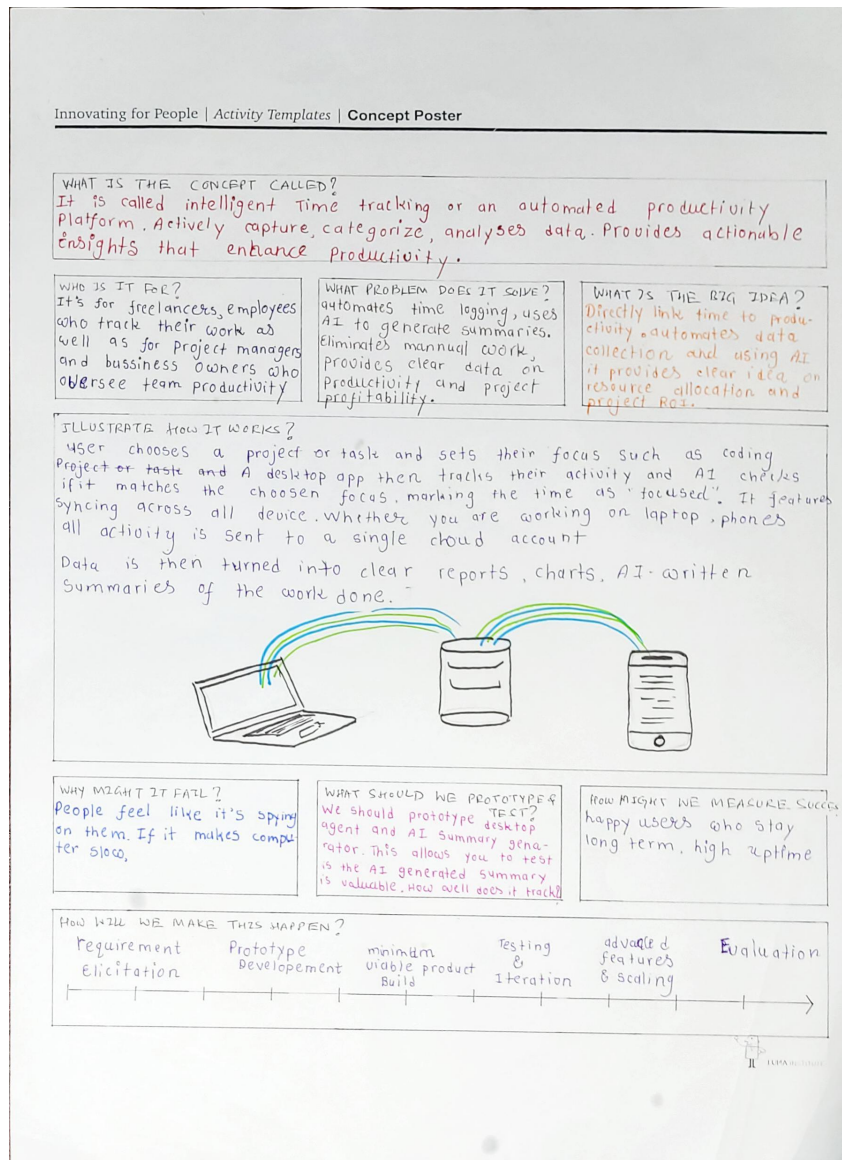 Innovating for People | Activity Templates | Concept Poster
WHAT IS THE CONCEPT CALLED?
It is called intelligent Time tracking or an automated productivity
Platform. Actively capture, categorize, analyses data. Provides actionable
insights that enhance Productivity.
WHO IS IT FOR?
It's for freelancers, employees
who track their work as
well as for project managers
and bussiness owners who
obersee team productivity
WHAT PROBLEM DOES IT SOLVE?
automates time logging, uses
AI to generate summaries.
Eliminates mannual work,
provides clear data on
productivity and project
profitability.
WHAT IS THE BIG IDEA?
Directly link time to produ-
ctivity. automates data
collection and using AI
it provides clear idea on
resource allocation and
project ROI.
ILLUSTRATE HOW IT WORKS?
user chooses a project or task and sets their focus such as coding
Project or task and A desktop app then tracks their activity and AI checks
if it matches the choosen focus, marking the time as "focused". It features
syncing across all device. Whether you are working on laptop, phones
all activity is sent to a single cloud account
Data is then turned into clear reports, charts, AI-written
Summaries of the work done.
WHY MIGHT IT FAIL?
People feel like it's spying
on them. If it makes compu-
ter slow,
WHAT SHOULD WE PROTOTYPE &
TEST?
We should prototype desktop
agent and AI summary gena-
rator. This allows you to test
is the AI generated summary
is valuable. How well does it track?
HOW MIGHT WE MEASURE SUCCESS
happy users who stay
long term, high uptime
HOW WILL WE MAKE THIS HAPPEN?
requirement
Elicitation
Prototype
Developement
minimum
viable product
Build
Testing
&
Iteration
advaced
features
& scaling
Evaluation